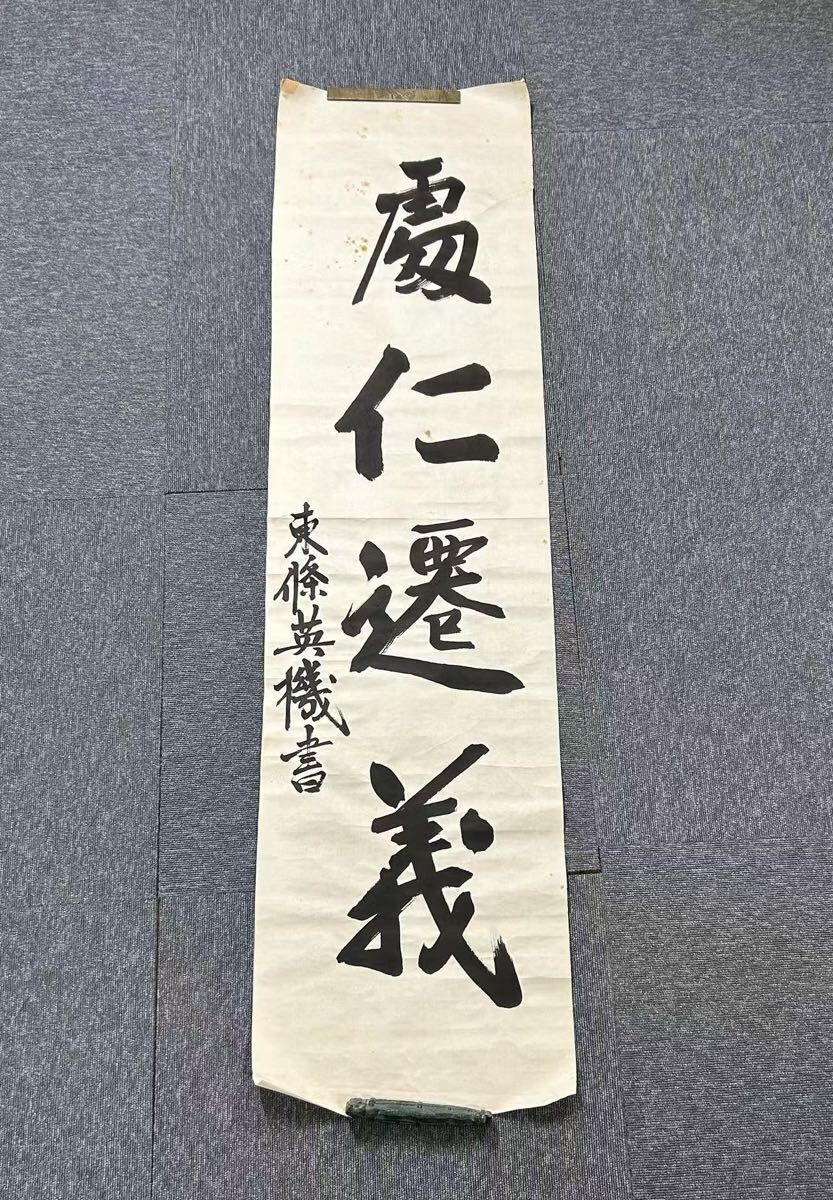 處仁遷義
東條英機書